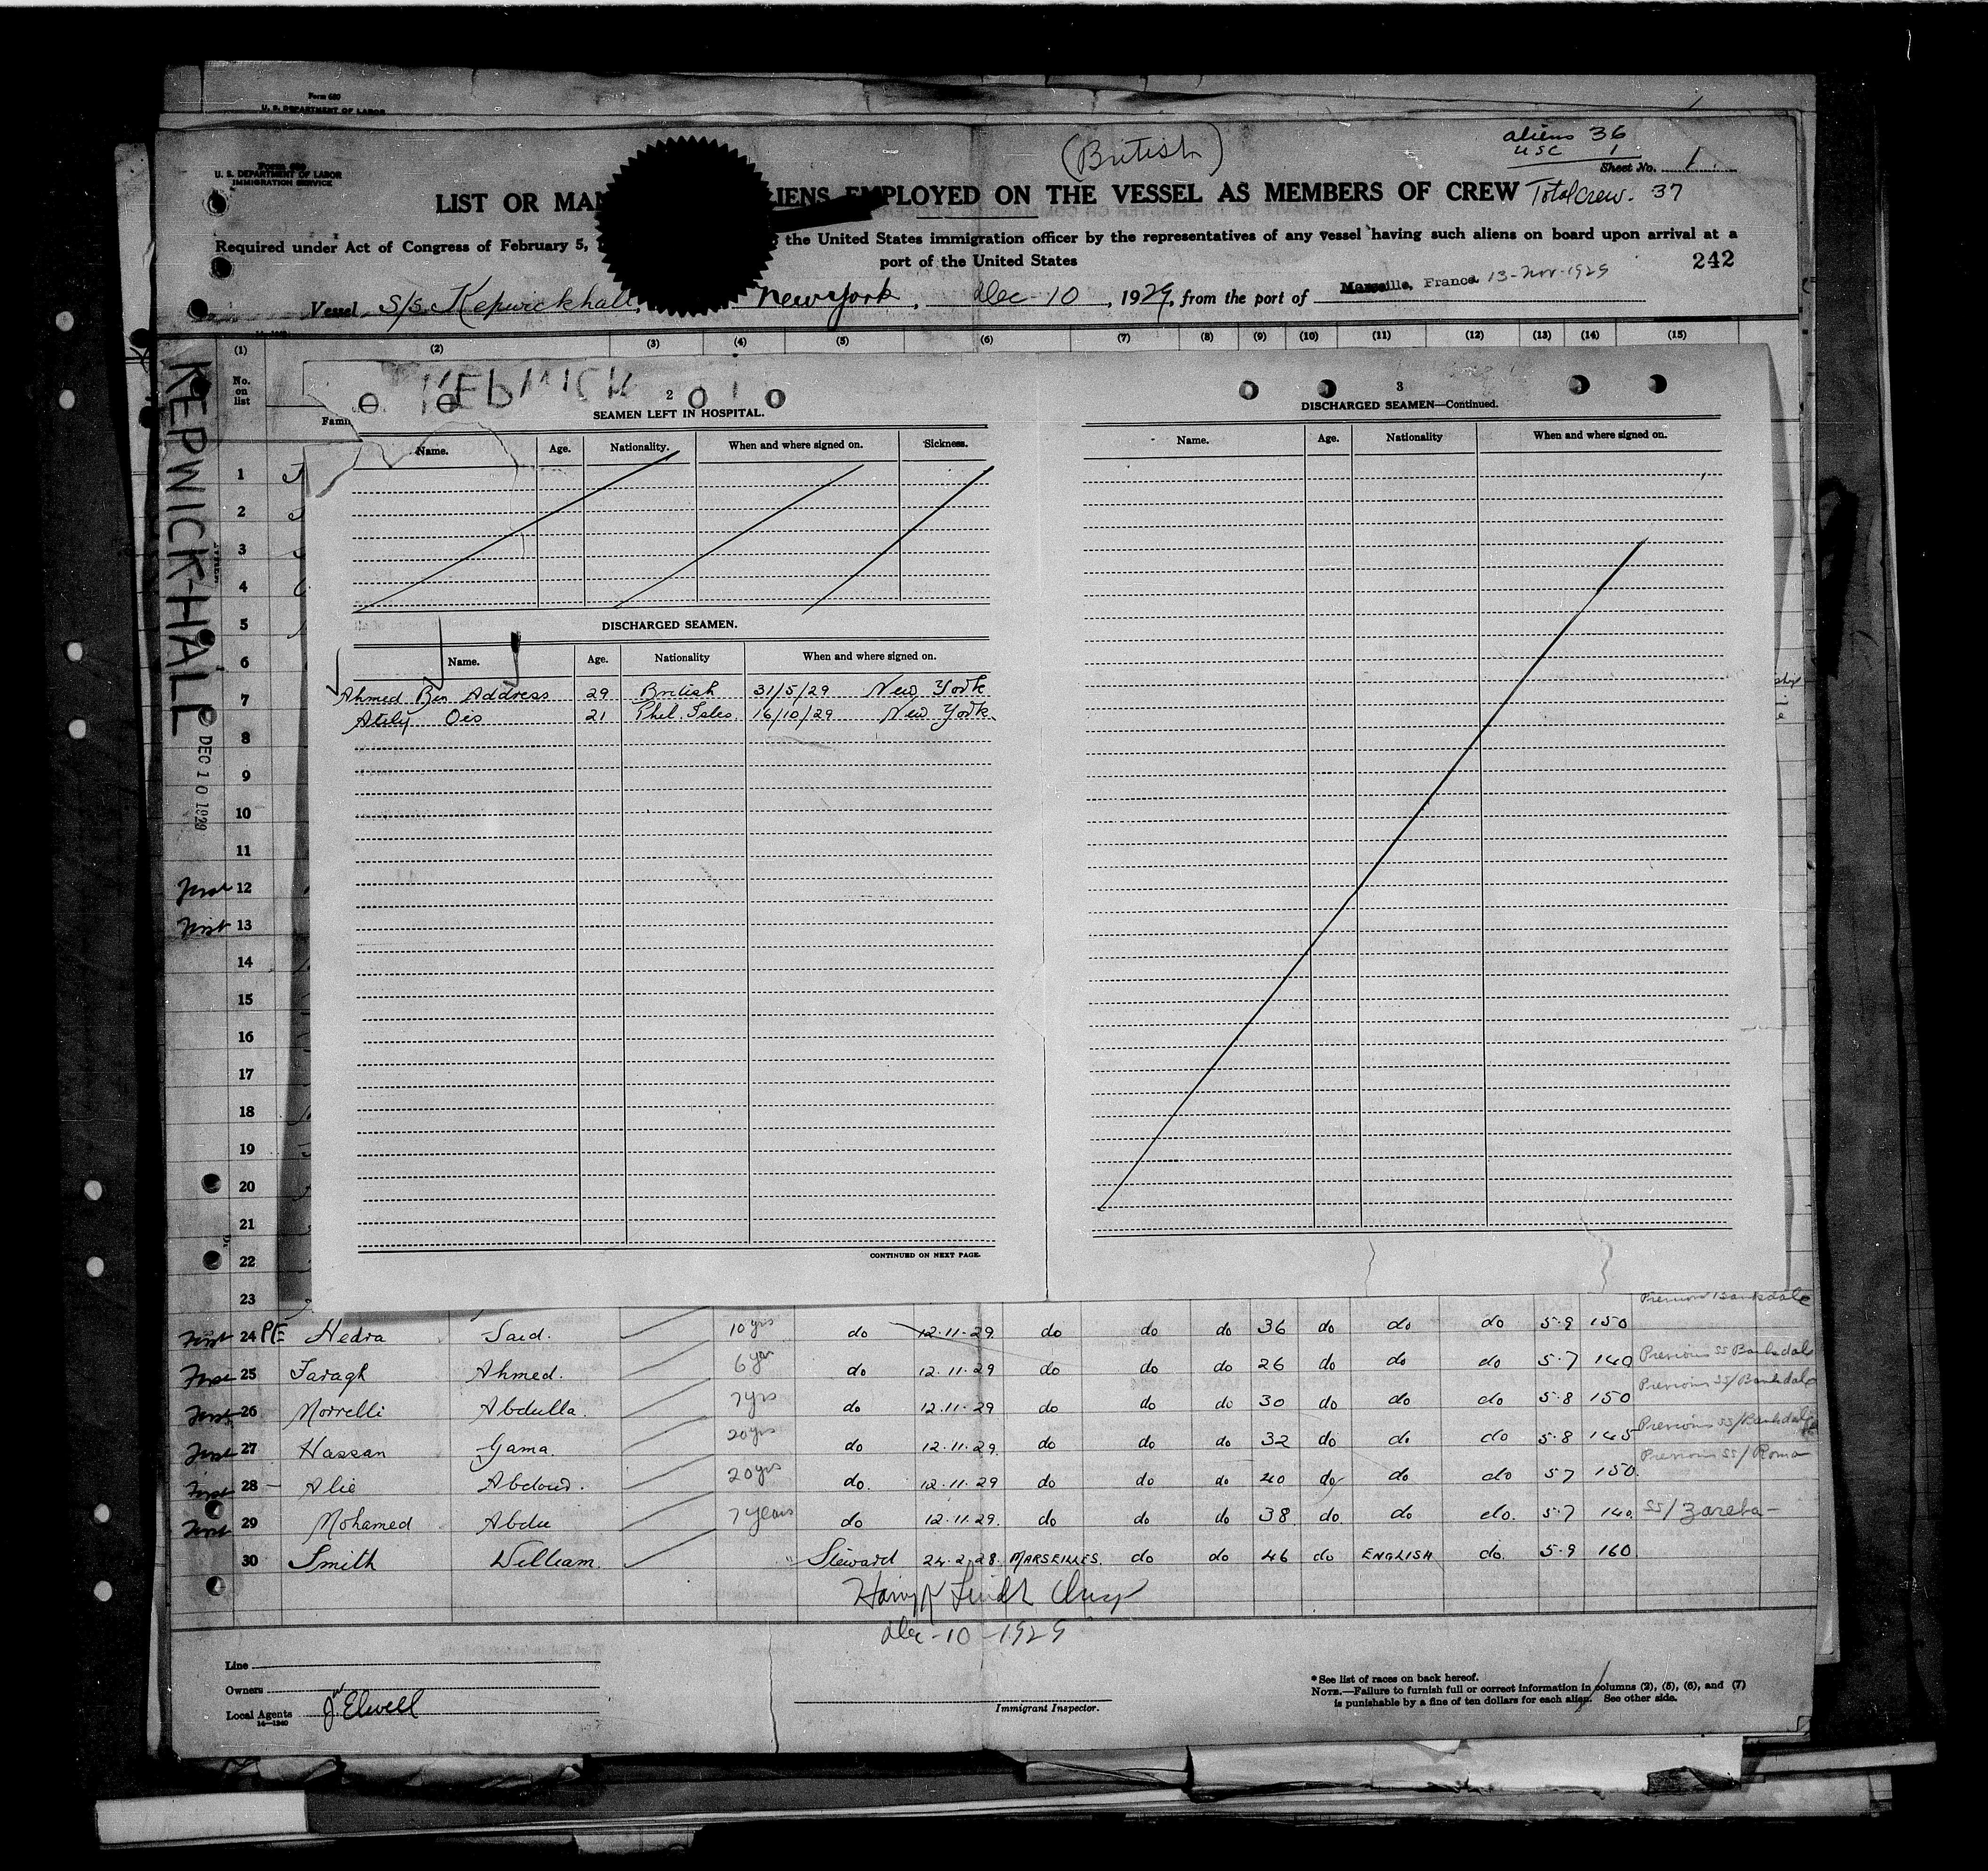 Form 680
U. S. DEPARTMENT OF LABOR
Form 680
U. S. DEPARTMENT OF LABOR
IMMIGRATION SERVICE
(British)
aliens 36
USC 1
Sheet No. 1
LIST OR MAN LIENS EMPLOYED ON THE VESSEL AS MEMBERS OF CREW Total Crew. 37
Required under Act of Congress of February 5, the United States immigration officer by the representatives of any vessel having such aliens on board upon arrival at a
port of the United States
242
Vessel S/S. Kepwickhall, New York, Dec-10, 1929, from the port of Marseille, France 13-Nov-1929
(1) (2) (3) (4) (5) (6) (7) (8) (9) (10) (11) (12) (13) (14) (15)
No. on list
KEPWICK-HALL
DEC 10 1929
2
SEAMEN LEFT IN HOSPITAL.
Name. Age. Nationality. When and where signed on. Sickness.
DISCHARGED SEAMEN.
Name. Age. Nationality When and where signed on.
Ahmed Ben Address 29 British 31/5/29 New York
Ois 21 Phil. Isles. 16/10/29 New York.
CONTINUED ON NEXT PAGE.
3
DISCHARGED SEAMEN—Continued.
Name. Age. Nationality When and where signed on.
1
2
3
4
5
6
7
8
9
10
11
First 12
First 13
14
15
16
17
18
19
20
21
22
23
First 24 PE Hedra Said. 10 yrs do 12.11.29. do do do 36 do do do 5.9 150
First 25 Faragh Ahmed. 6 yrs do 12.11.29 do do do 26 do do do 5.7 140 Previous SS Banksdale
First 26 Morrelli Abdulla. 7 yrs do 12.11.29 do do do 30 do do do 5.8 150 Previous SS/Banksdale
First 27 Hassan Gama. 20 yrs do 12.11.29. do do do 32 do do do 5.8 145 Previous SS/Banksdale
First 28 Alie Abdoud. 20 yrs do. 12.11.29 do do do 40 do do do 5.7 150. Previous SS/Roma
First 29 Mohamed Abdu 7 years do 12.11.29. do do do 38. do. do do. 5.7 140. SS/Zareba
30 Smith William. Steward 24.2.28. MARSEILLES. do do 46 do ENGLISH do. 5.9 160
Dec-10-1929
Line
Owners
Local Agents J. Elwell
14—1240
Immigrant Inspector.
* See list of races on back hereof.
NOTE.—Failure to furnish full or correct information in columns (2), (5), (6), and (7)
is punishable by a fine of ten dollars for each alien. See other side.